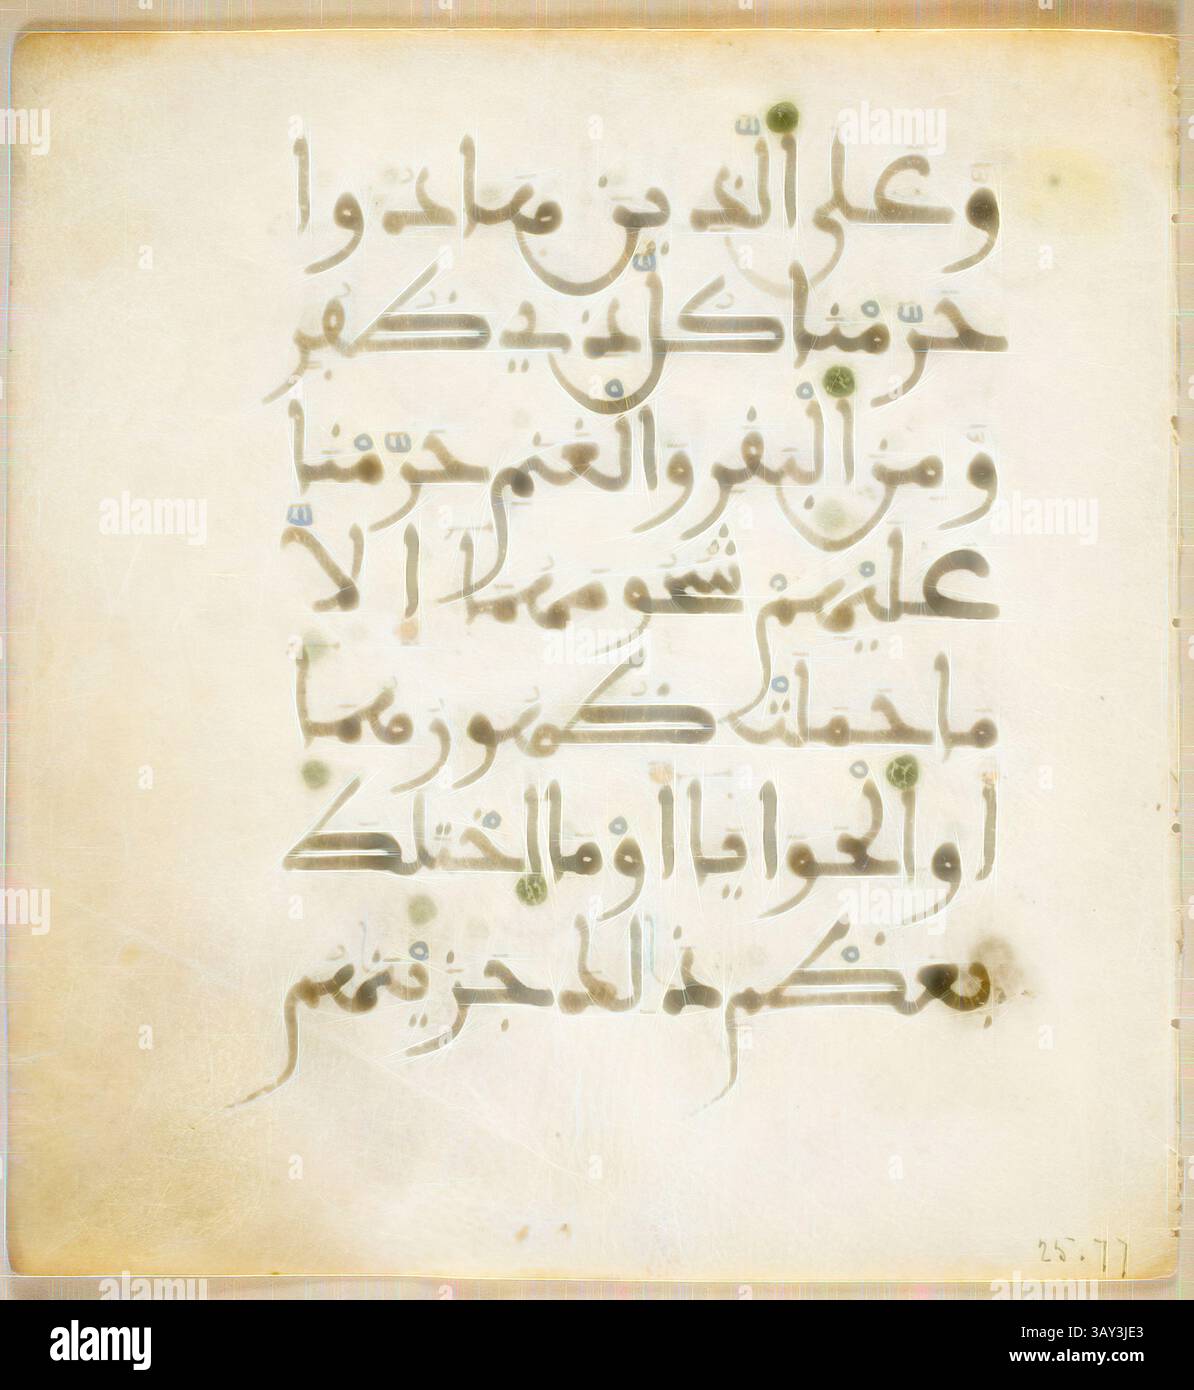 وعلى الذين هادوا
حرّمنا كلّ ذي ظفر
ومن البقر والغنم حرّمنا
عليهم شحومهما إلّا
ما حملت ظهورهما
أو الحوايا أو ما اختلط
بعظم ذلك جزينهم
25.77
alamy
Image ID: 3AY3JE3
www.alamy.com